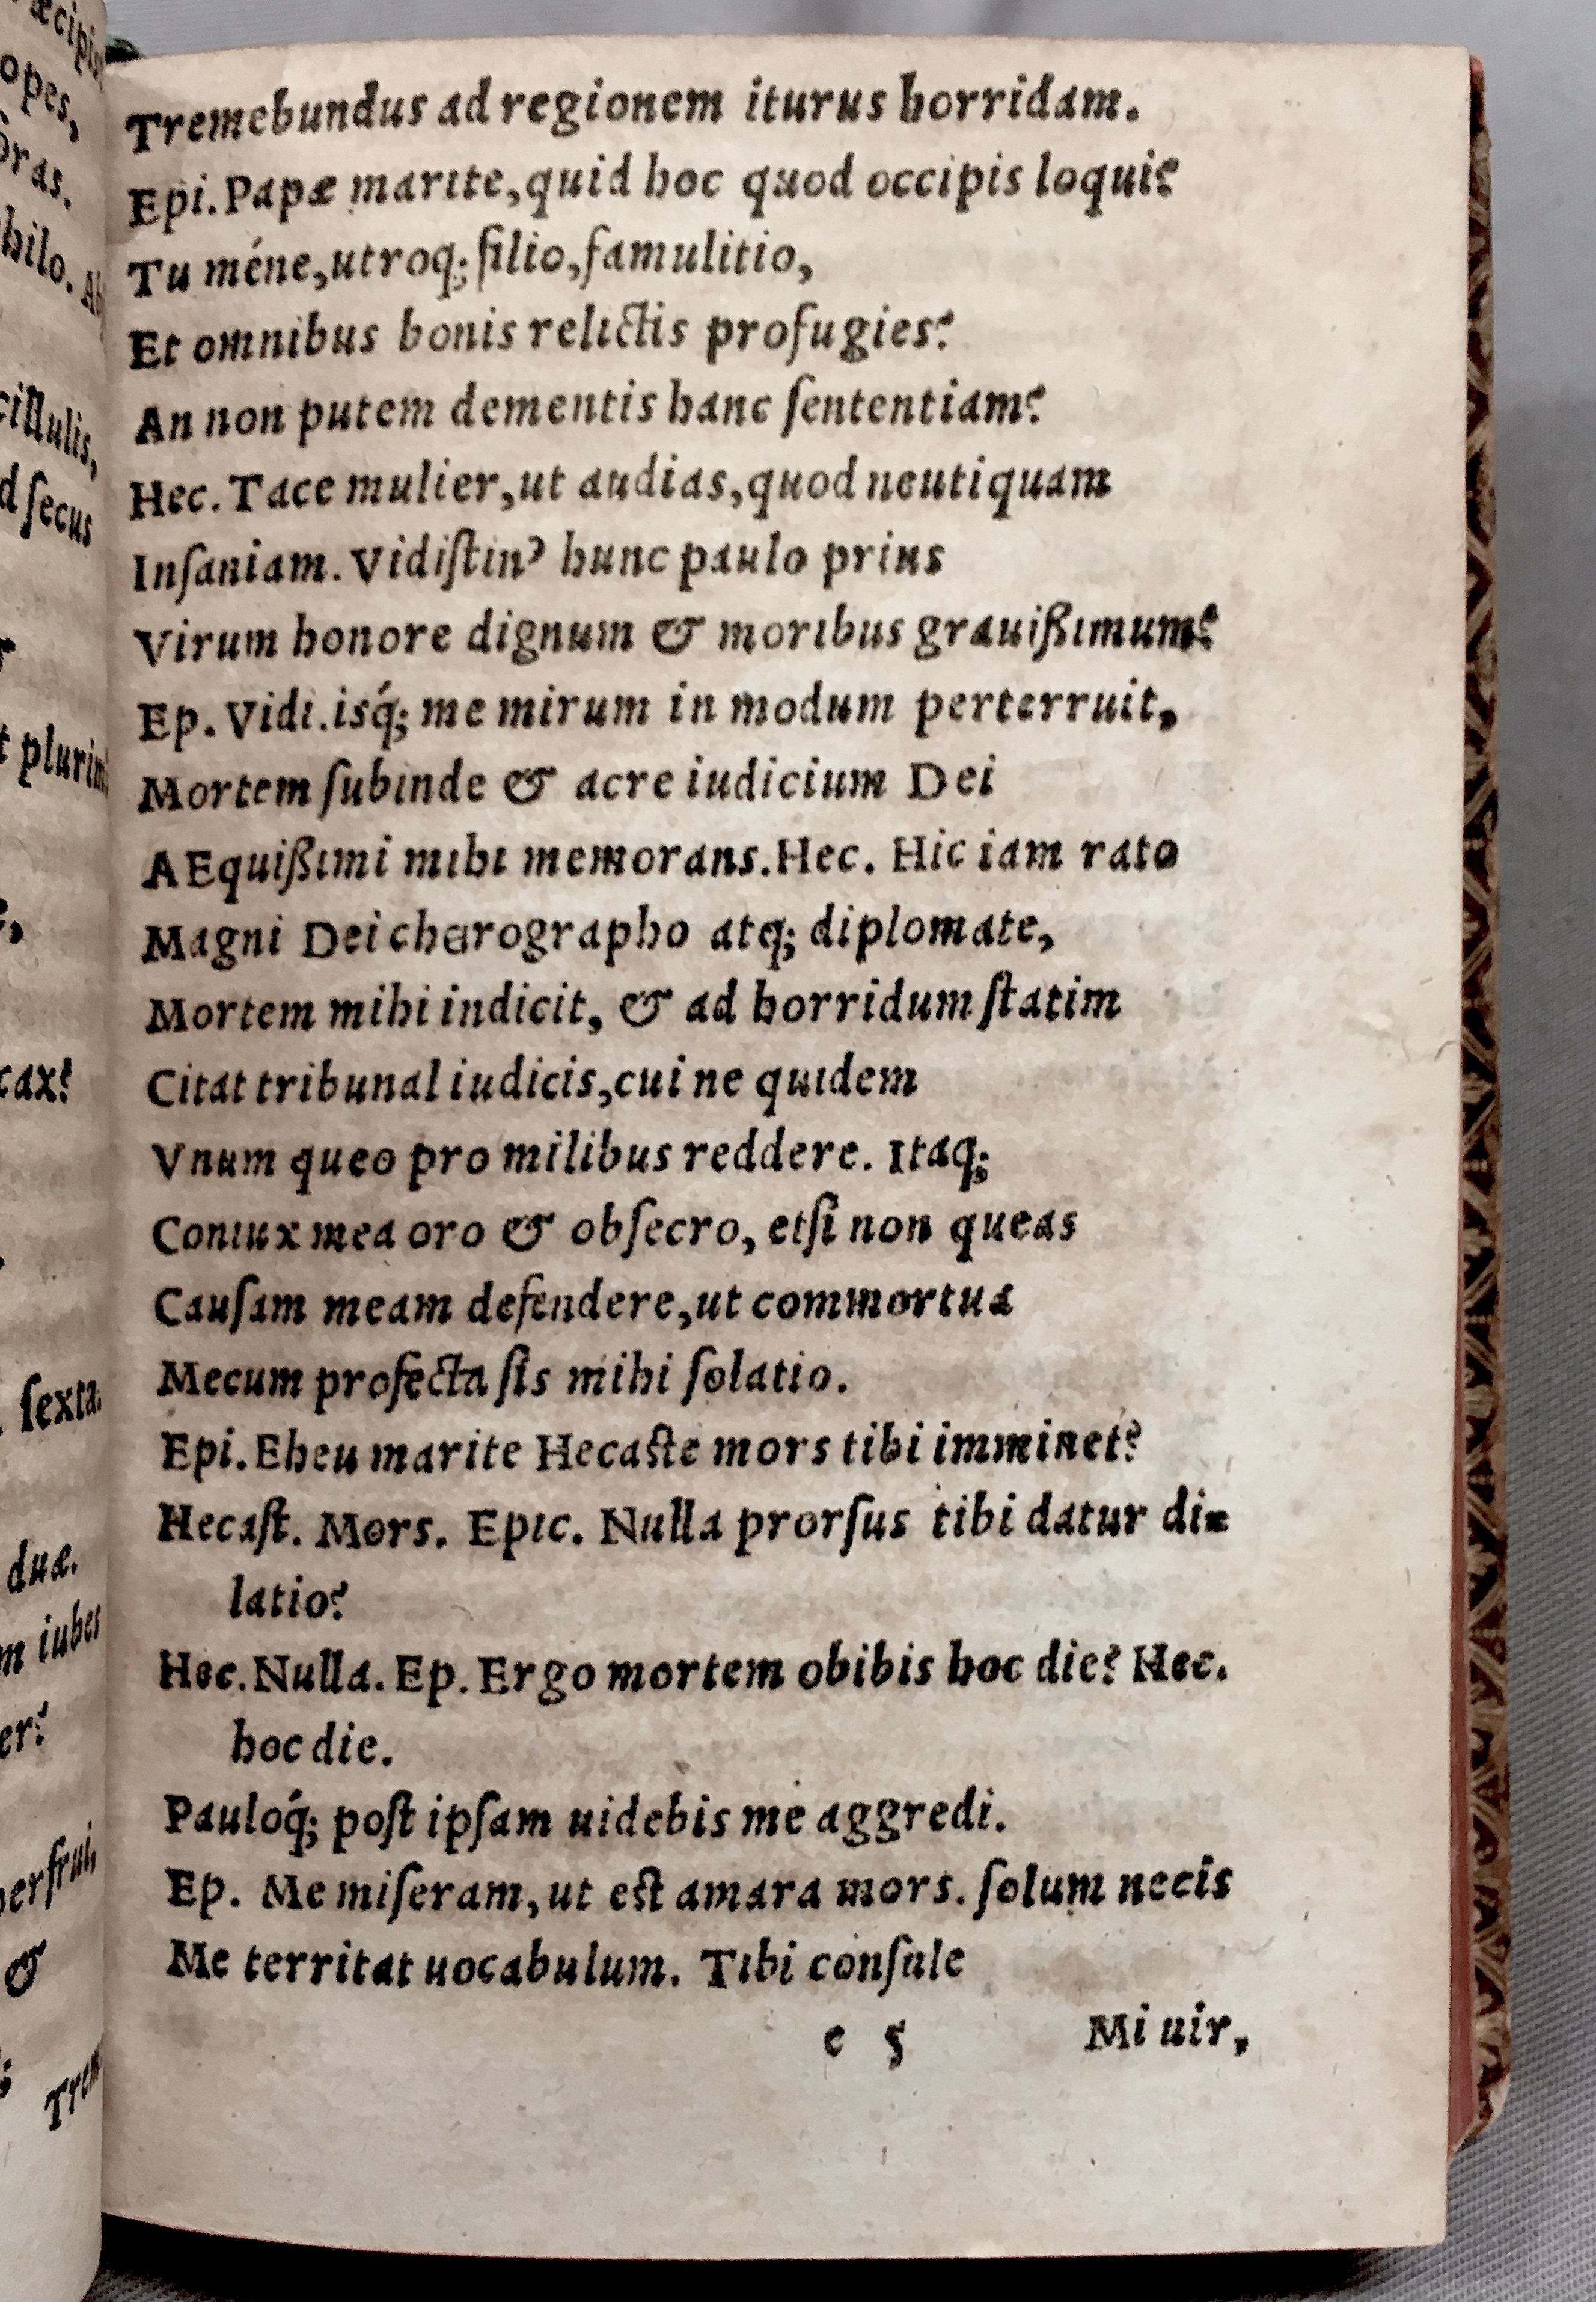 Tremebundus ad regionem iturus horridam.
Epi. Papæ marite, quid hoc quod occipis loqui?
Tu méne, utroq; filio, famulitio,
Et omnibus bonis relictis profugies?
An non putem dementis hanc ſententiam?
Hec. Tace mulier, ut audias, quod neutiquam
Inſaniam. Vidiſtin' hunc paulo prius
Virum honore dignum & moribus grauißimum?
Ep. Vidi. isq́; me mirum in modum perterruit,
Mortem ſubinde & acre iudicium Dei
AEquißimi mihi memorans. Hec. Hic iam rato
Magni Dei cherographo atq; diplomate,
Mortem mihi indicit, & ad horridum ſtatim
Citat tribunal iudicis, cui ne quidem
Vnum queo pro milibus reddere. Itaq;
Coniux mea oro & obſecro, etſi non queas
Cauſam meam defendere, ut commortua
Mecum profecta ſis mihi ſolatio.
Epi. Eheu marite Hecaſte mors tibi imminet?
Hecaſt. Mors. Epic. Nulla prorſus tibi datur di=
latio?
Hec. Nulla. Ep. Ergo mortem obibis hoc die? Hec.
hoc die.
Pauloq́; poſt ipſam uidebis me aggredi.
Ep. Me miſeram, ut eſt amara mors. ſolum necis
Me territat uocabulum. Tibi conſule
e 5 Mi uir,